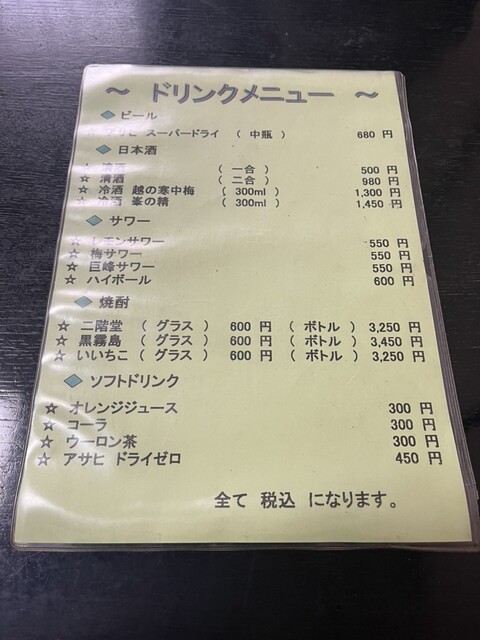 ～ ドリンクメニュー ～
◆ビール
アサヒ スーパードライ （ 中瓶 ） 680 円
◆日本酒
☆ 清酒 （ 一合 ） 500 円
☆ 清酒 （ 二合 ） 980 円
☆ 冷酒 越の寒中梅 （ 300ml ） 1,300 円
☆ 冷酒 峯の精 （ 300ml ） 1,450 円
◆サワー
☆ レモンサワー 550 円
☆ 梅サワー 550 円
☆ 巨峰サワー 550 円
☆ ハイボール 600 円
◆焼酎
☆ 二階堂 （ グラス ） 600 円 （ ボトル ） 3,250 円
☆ 黒霧島 （ グラス ） 600 円 （ ボトル ） 3,450 円
☆ いいちこ （ グラス ） 600 円 （ ボトル ） 3,250 円
◆ソフトドリンク
☆ オレンジジュース 300 円
☆ コーラ 300 円
☆ ウーロン茶 300 円
☆ アサヒ ドライゼロ 450 円
全て 税込 になります。